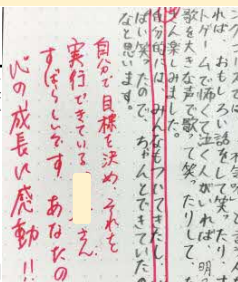 れば、おもしろい話をして笑ったり、
トゲームで怖くて泣く人がいれば、明
歌を大きな声で歌って笑ったりして、
楽しみました。
自分的には、
ばい笑ったので、ちゃんとできていた
なと思います。
自分で目標を決め、それを
実行できている さん
すばらしいです。あなたの
心の成長に感動!!